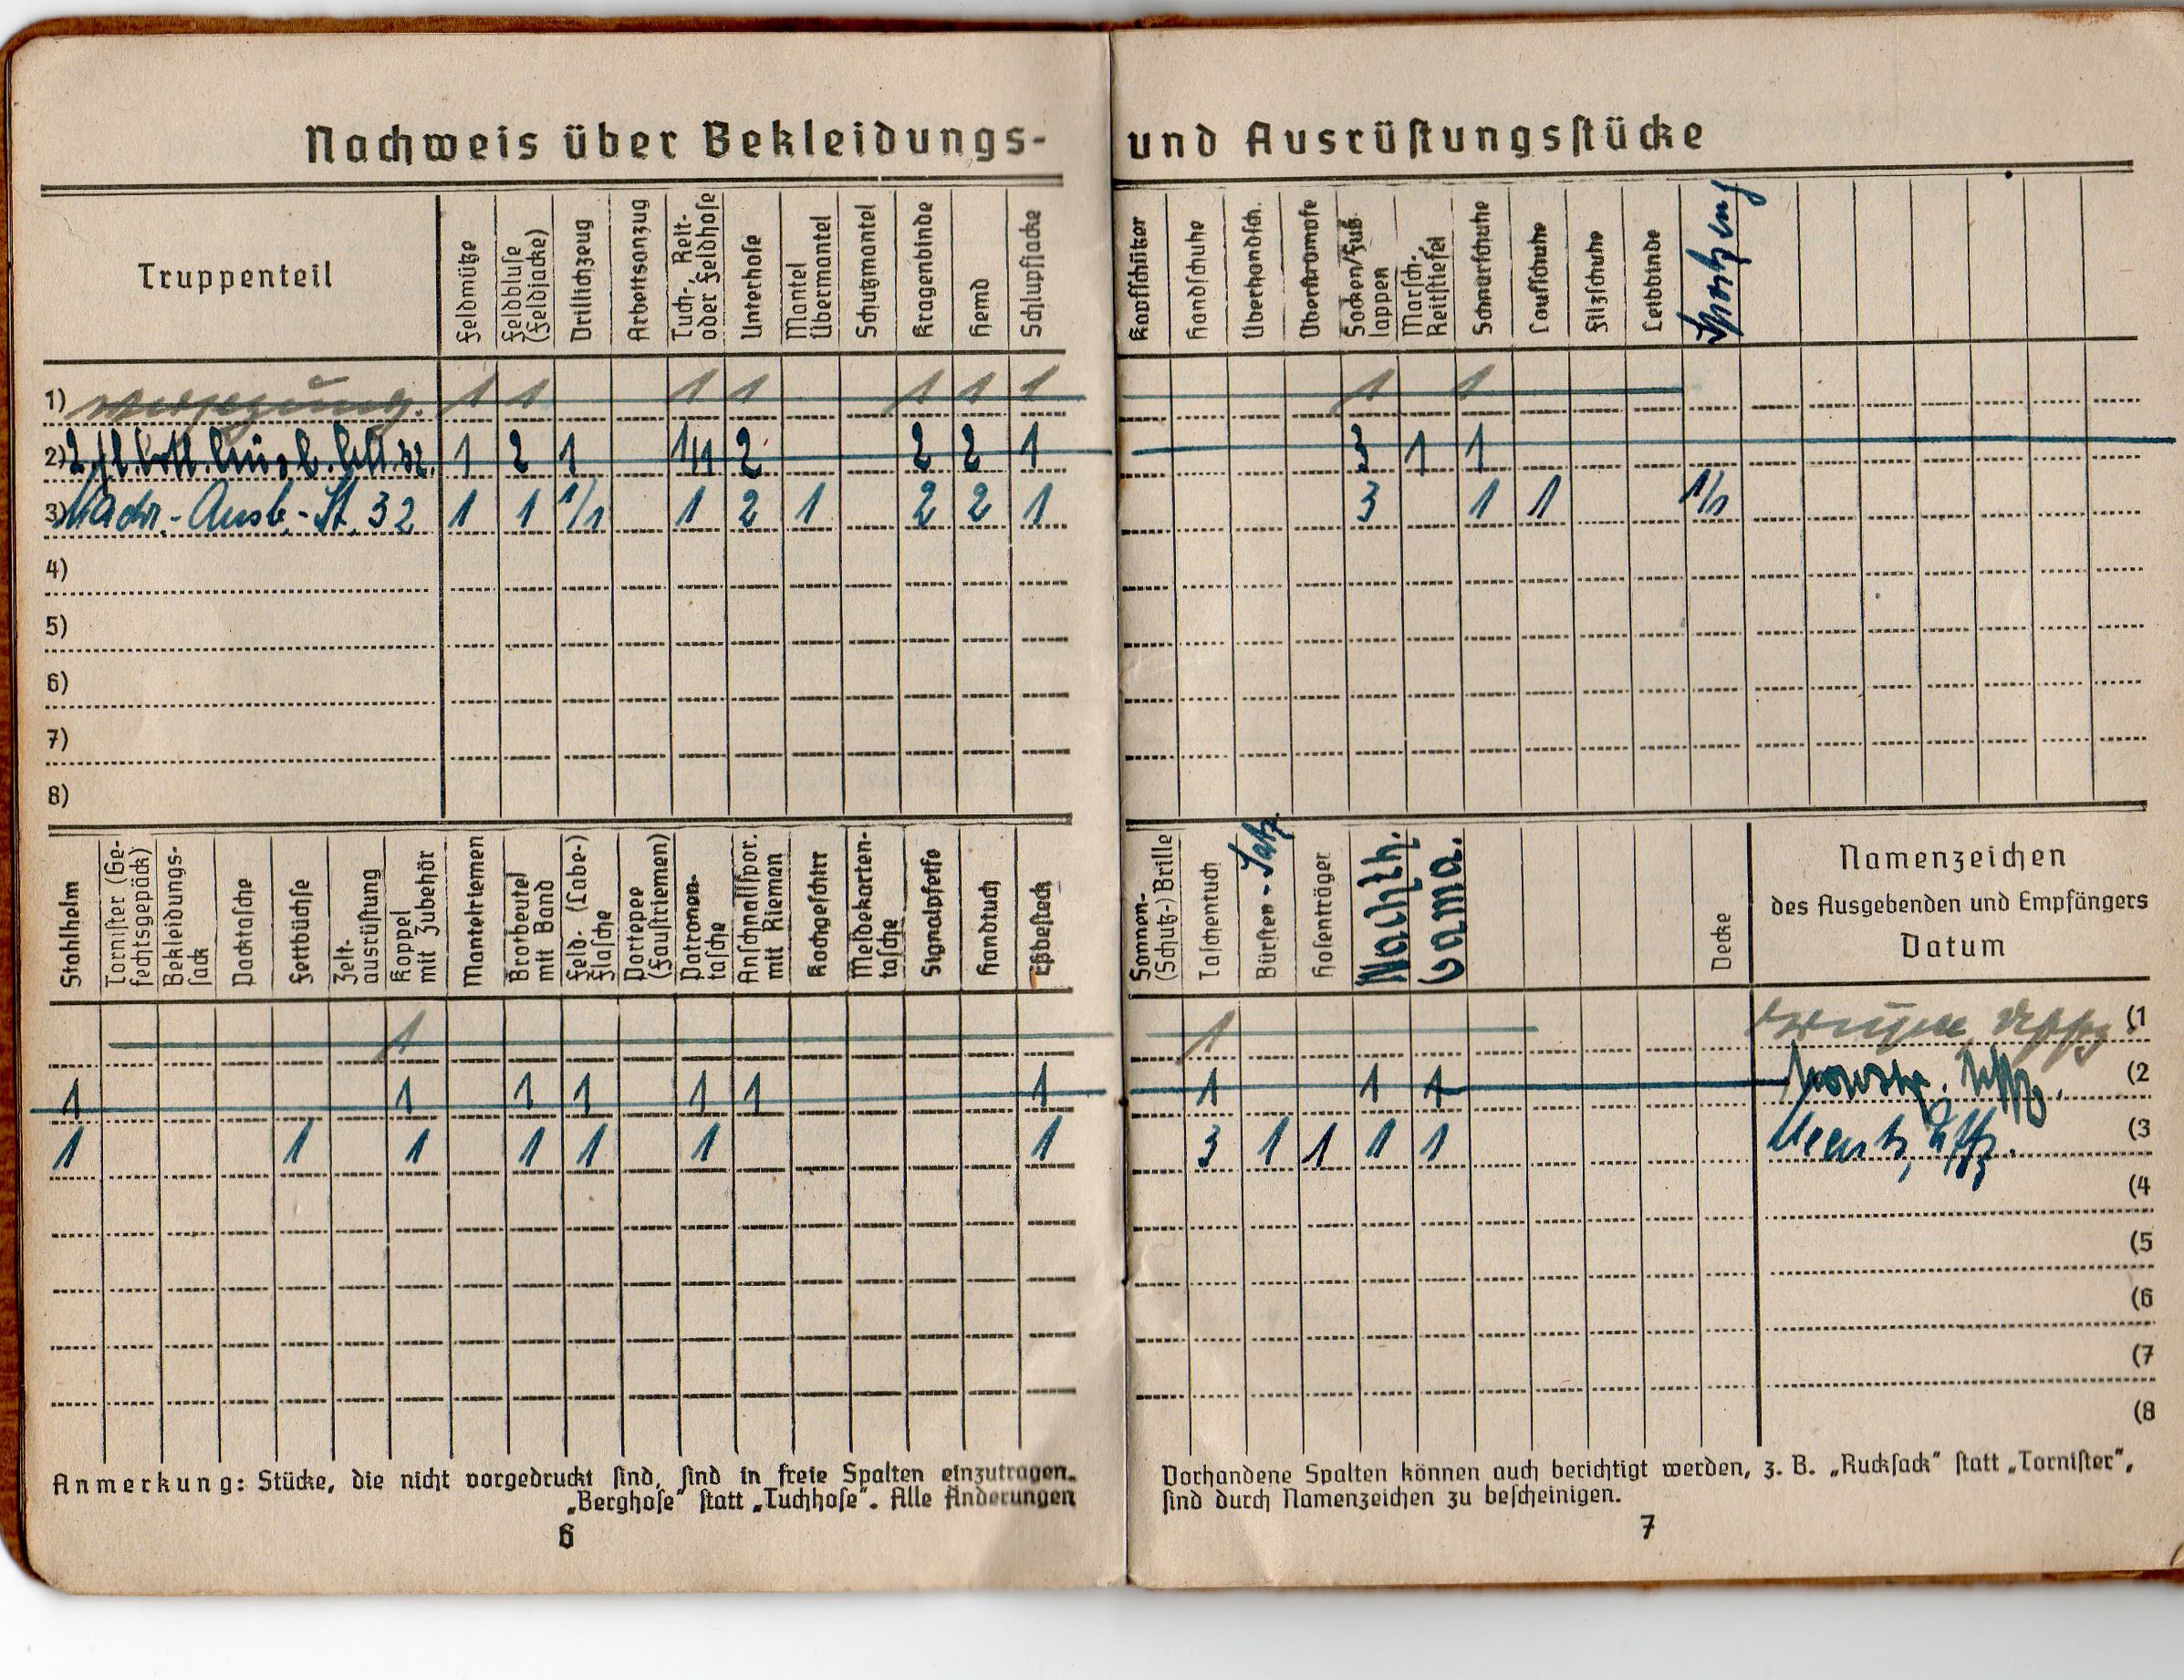 Nachweis über Bekleidungs- und Ausrüstungsstücke
Truppenteil
Feldmütze
Feldbluse
(Feldjacke)
Drillichzeug
Arbeitsanzug
Tuch-, Reit-
oder Feldhose
Unterhose
Mantel
Übermantel
Schutzmantel
Kragenbinde
Hemd
Schlupfjacke
Kopfschützer
Handschuhe
Überhandsch.
Überstrümpfe
Socken/Fuß
lappen
Marsch-
Reitstiefel
Schnürschuhe
Laufschuhe
Filzschuhe
Leibbinde
Sportzeug
1) 1 1 1 1 1 1 1 1 1
2) 1 2 1 1/1 2 2 2 1 3 1 1
3) Nachr.-Ausb.-St. 32 1 1 1/1 1 2 1 2 2 1 3 1 1 1/1
4)
5)
6)
7)
8)
Stahlhelm
Tornister (Ge-
fechtsgepäck)
Bekleidungs-
sack
Packtasche
Fettbüchse
Zelt-
ausrüstung
Koppel
mit Zubehör
Mantelriemen
Brotbeutel
mit Band
Feld- (Labe-)
flasche
Portepee
(Faustriemen)
Patronen-
tasche
Anschnallspor.
mit Riemen
Kochgeschirr
Meldekarten-
tasche
Signalpfeife
Handtuch
Eßbesteck
Sonnen-
(Schutz-) Brille
Taschentuch
Bürsten-Satz
Hosenträger
Nachth.
Gama.
Decke
Namenzeichen
des Ausgebenden und Empfängers
Datum
1 1 (1
1 1 1 1 1 1 1 1 1 1 Uffz. (2
1 1 1 1 1 1 1 3 1 1 1 1 Uffz. (3
(4
(5
(6
(7
(8
Anmerkung: Stücke, die nicht vorgedruckt sind, sind in freie Spalten einzutragen. Vorhandene Spalten können auch berichtigt werden, z. B. „Rucksack“ statt „Tornister“,
„Berghose“ statt „Tuchhose“. Alle Änderungen sind durch Namenzeichen zu bescheinigen.
6 7